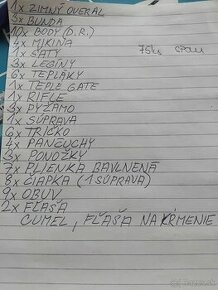 1x ZIMNÝ OVERAL
3x BUNDA
10x BODY (D.R.)
4x MIKINA 75ks SPOLU
1x ŠATY
3x LEGÍNY
6x TEPLÁKY
1x TEPLE GATE
1x RIFLE
3x PYŽAMO
1x SÚPRAVA
6x TRIČKO
4x PANČUCHY
3x PONOŽKY
7x PLIENKA BAVLNENÁ
8x ČIAPKA (1 SÚPRAVA)
9x OBUV
2x FĽAŠA
CUMEĽ, FĽAŠA NA KŔMENIE